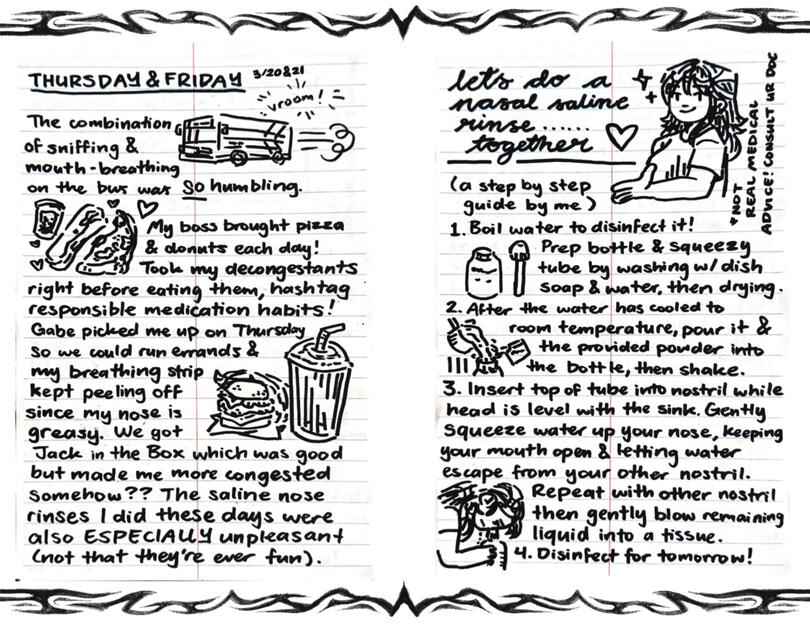 THURSDAY & FRIDAY 3/20&21
vroom!
The combination
of sniffing &
mouth-breathing
on the bus was SO humbling.
My boss brought pizza
& donuts each day!
Took my decongestants
right before eating them, hashtag
responsible medication habits!
Gabe picked me up on Thursday
so we could run errands &
my breathing strip
kept peeling off
since my nose is
greasy. We got
Jack in the Box which was good
but made me more congested
somehow?? The saline nose
rinses I did these days were
also ESPECIALLY unpleasant
(not that they're ever fun).
let's do a
nasal saline
rinse......
together
*NOT
REAL MEDICAL
ADVICE! CONSULT UR DOC
(a step by step
guide by me)
1. Boil water to disinfect it!
Prep bottle & squeezy
tube by washing w/ dish
soap & water, then drying.
2. After the water has cooled to
room temperature, pour it &
the provided powder into
the bottle, then shake.
3. Insert top of tube into nostril while
head is level with the sink. Gently
squeeze water up your nose, keeping
your mouth open & letting water
escape from your other nostril.
Repeat with other nostril
then gently blow remaining
liquid into a tissue.
4. Disinfect for tomorrow!